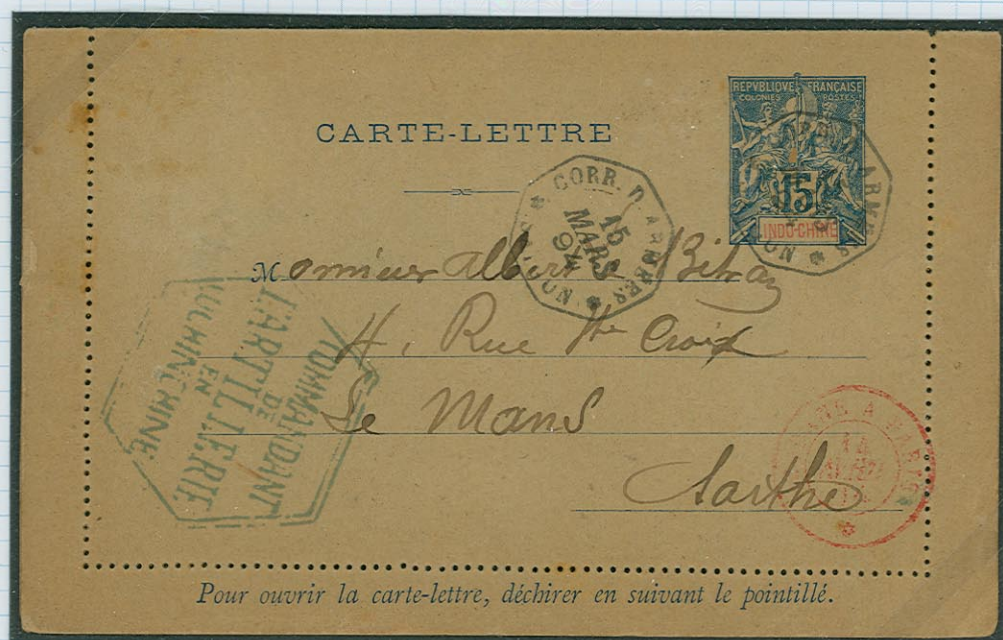 REPVBLIQVE FRANÇAISE
COLONIES POSTES
CARTE-LETTRE
15
INDO-CHINE
CORR. D. ARMÉES
15
MARS
94
Monsieur Albert
4, Rue Ste Croix
Le Mans
Sarthe
COMMANDANT
DE
L'ARTILLERIE
EN
COCHINCHINE
A PARIS
14
Pour ouvrir la carte-lettre, déchirer en suivant le pointillé.